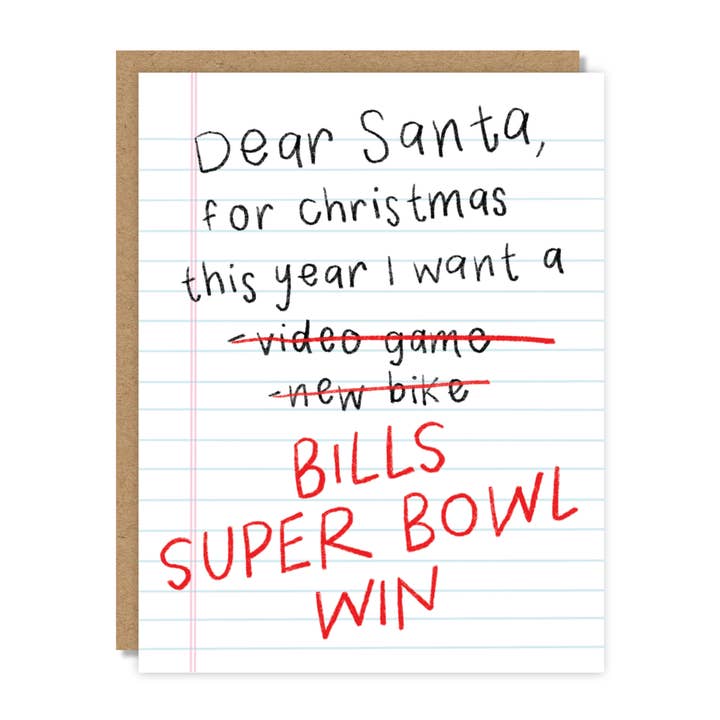 Dear Santa,
for christmas
this year I want a
-video game
-new bike
BILLS
SUPER BOWL
WIN